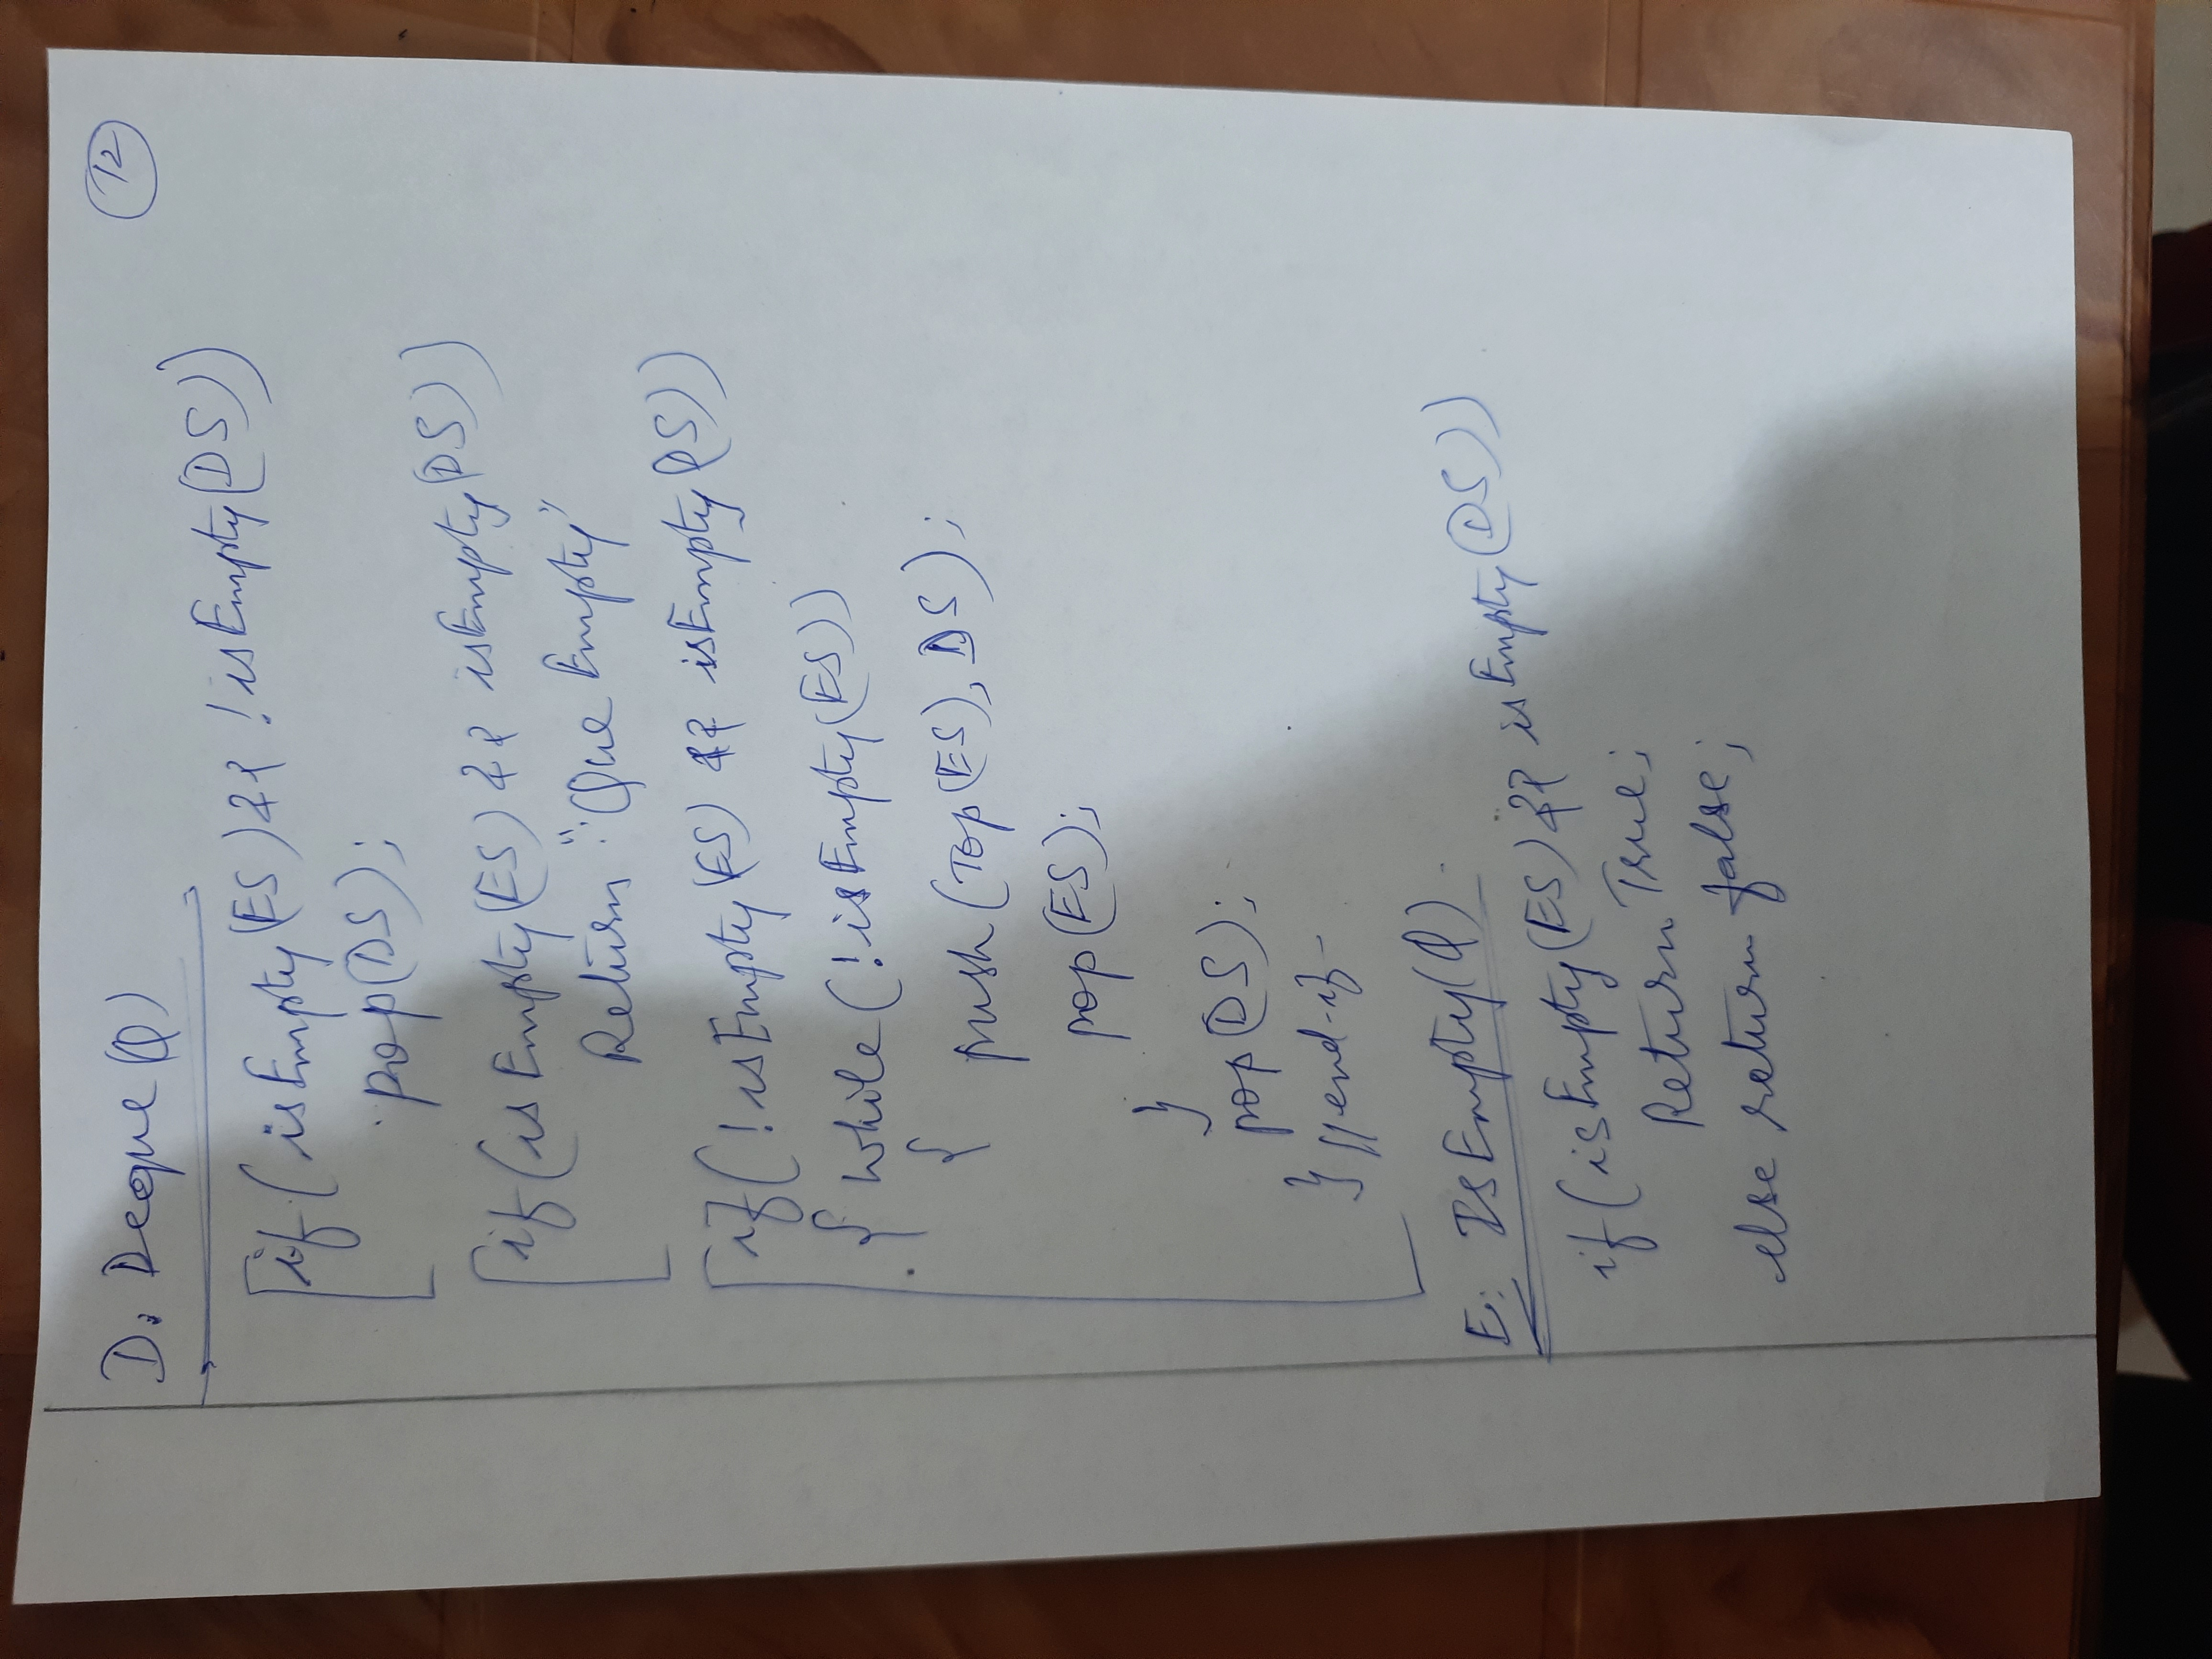 12
D. Deque(Q)
if (isEmpty(ES) && !isEmpty(DS))
pop(DS);
if (isEmpty(ES) && isEmpty(DS))
Return "Que Empty"
if (!isEmpty(ES) && isEmpty(DS))
{ while (!isEmpty(ES))
{ push(Top(ES), DS);
pop(ES);
}
pop(DS);
} //end-if
E. IsEmpty(Q)
if (isEmpty(ES) && isEmpty(DS))
Return True;
else return false;